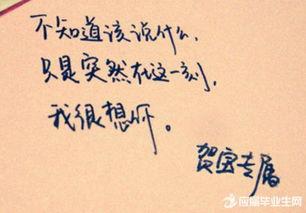 不知道该说什么，
只是突然在这一刻，
我很想你。
贺蜜专属
应届毕业生网